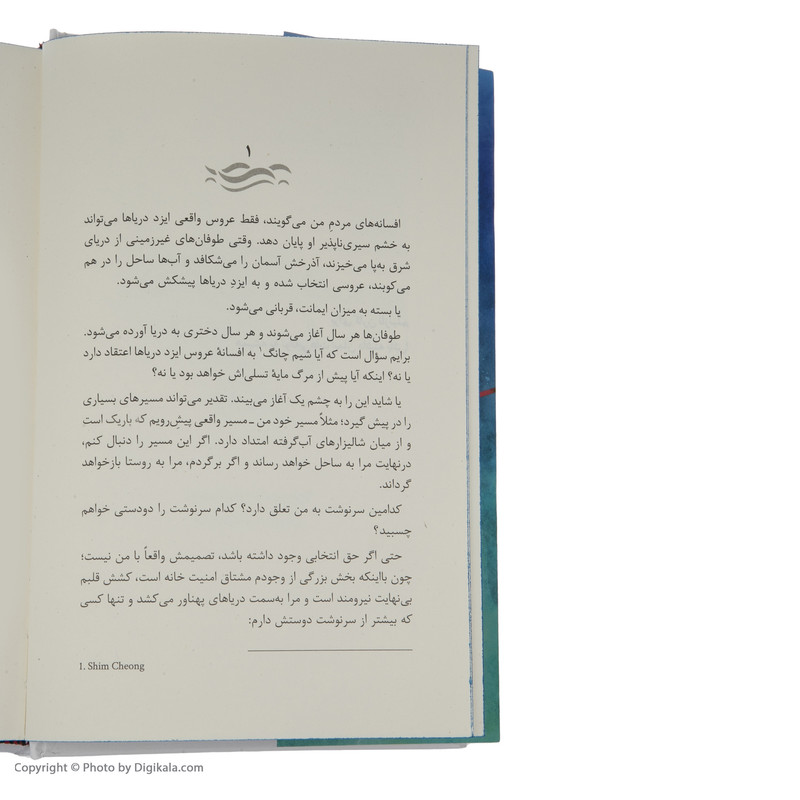 ۱
افسانه‌های مردمِ من می‌گویند، فقط عروس واقعی ایزد دریاها می‌تواند
به خشم سیری‌ناپذیر او پایان دهد. وقتی طوفان‌های غیرزمینی از دریای
شرق به‌پا می‌خیزند، آذرخش آسمان را می‌شکافد و آب‌ها ساحل را در هم
می‌کوبند، عروسی انتخاب شده و به ایزدِ دریاها پیشکش می‌شود.
یا بسته به میزان ایمانت، قربانی می‌شود.
طوفان‌ها هر سال آغاز می‌شوند و هر سال دختری به دریا آورده می‌شود.
برایم سؤال است که آیا شیم چانگ۱ به افسانهٔ عروس ایزد دریاها اعتقاد دارد
یا نه؟ اینکه آیا پیش از مرگ مایهٔ تسلی‌اش خواهد بود یا نه؟
یا شاید این را به چشم یک آغاز می‌بیند. تقدیر می‌تواند مسیرهای بسیاری
را در پیش گیرد؛ مثلاً مسیر خود من ـ مسیر واقعی پیشِ‌رویم که باریک است
و از میان شالیزارهای آب‌گرفته امتداد دارد. اگر این مسیر را دنبال کنم،
درنهایت مرا به ساحل خواهد رساند و اگر برگردم، مرا به روستا بازخواهد
گرداند.
کدامین سرنوشت به من تعلق دارد؟ کدام سرنوشت را دودستی خواهم
چسبید؟
حتی اگر حق انتخابی وجود داشته باشد، تصمیمش واقعاً با من نیست؛
چون بااینکه بخش بزرگی از وجودم مشتاق امنیت خانه است، کشش قلبم
بی‌نهایت نیرومند است و مرا به‌سمت دریاهای پهناور می‌کشد و تنها کسی
که بیشتر از سرنوشت دوستش دارم:
1. Shim Cheong
Copyright © Photo by Digikala.com